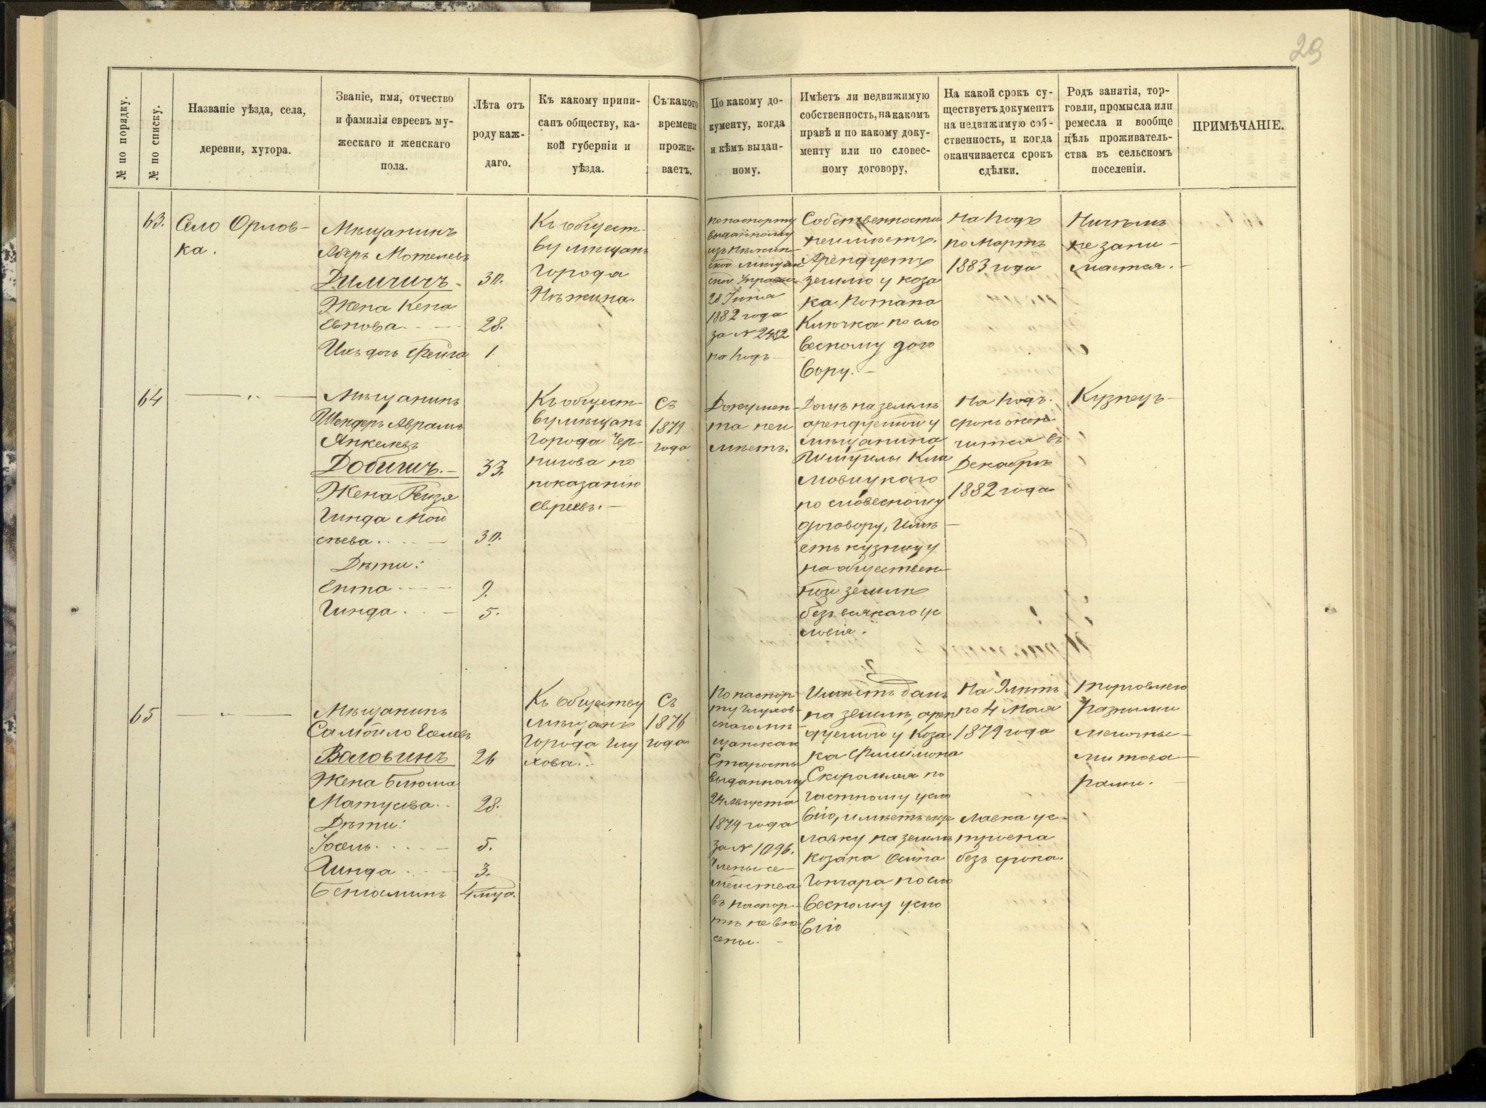 29
№ по порядку.
№ по списку.
Названіе уѣзда, села,
деревни, хутора.
Званіе, имя, отчество
и фамилія евреевъ му-
жескаго и женскаго
пола.
Лѣта отъ
роду каж-
даго.
Къ какому припи-
санъ обществу, ка-
кой губерніи и
уѣзда.
Съ какого
времени
прожи-
ваетъ.
По какому до-
кументу, когда
и кѣмъ выдан-
ному.
Имѣетъ ли недвижимую
собственность, на какомъ
правѣ и по какому доку-
менту или по словес-
ному договору,
На какой срокъ су-
ществуетъ документъ
на недвижимую соб-
ственность, и когда
оканчивается срокъ
сдѣлки.
Родъ занятія, тор-
говли, промысла или
ремесла и вообще
цѣль проживатель-
ства въ сельскомъ
поселеніи.
ПРИМѢЧАНІЕ.
63.
Село Орлов-
ка.
Мѣщанинъ
Аберъ Мотелевъ
Димчичъ.
Жена Кена
Евнова
Ихъ дочь Фейга
30.
28.
1
Къ общест-
ву мѣщанъ
города
Нѣжина
по паспорту
выданному
изъ Нѣжин-
ской мѣщан
ской Управы
21 Іюня
1882 года
за № 2482
на годъ
Собственности
неимѣетъ.
Арендуетъ
землю у коза
ка Потапа
Ключка по сло
весному дого
вору.
На годъ
по мартъ
1883 года
Ничѣмъ
не зани-
мается.
64
— „ —
Мѣщанинъ
Шендеръ Аврамъ
Янкелевъ
Добичинъ.
Жена Рейзя
Гинда Мой
сѣева
Дѣти:
Ента
Гинда
33.
30.
9.
5.
Къ общест-
ву мѣщанъ
города Чер-
нигова по
показанію
евреевъ.
Съ
1879
года
Докумен-
та неи
мѣетъ.
Домъ на землѣ
арендуемой у
мѣщанина
Климовицкаго
по словесному
договору. Имѣ-
етъ кузницу
на обществен-
ной землѣ
безъ всякаго ус
ловія.
На годъ.
срокъ окон
чится въ
Декабрѣ
1882 года
Кузнецъ
65
— „ —
Мѣщанинъ
Самойло Еселевъ
Ваговинъ
Жена Блюма
Матусова
Дѣти:
Іосель
Хинда
Беньоминъ
26
28.
5.
3.
4 мѣс.
Къ обществу
мѣщанъ
города Глу
хова.
Съ
1876
года
По паспор
ту Глухов-
скаго мѣ
щанскаго
Старосты
выданному
24 Августа
1879 года
за № 1096.
Члены се-
мейства
въ паспор-
тѣ не вне
сены.
Имѣетъ домъ
на землѣ, арен
дуемой у Коза
ка Филимона
Скоромная по
частному усло
вію, имѣетъ еще
лавку на землѣ
козака Осипа
Гончара по сло
весному усло
вію
На 9 лѣтъ
по 4 Мая
1879 года
лавка ус-
троена
безъ срока.
Торговлею
разными
мелочны-
ми това-
рами.